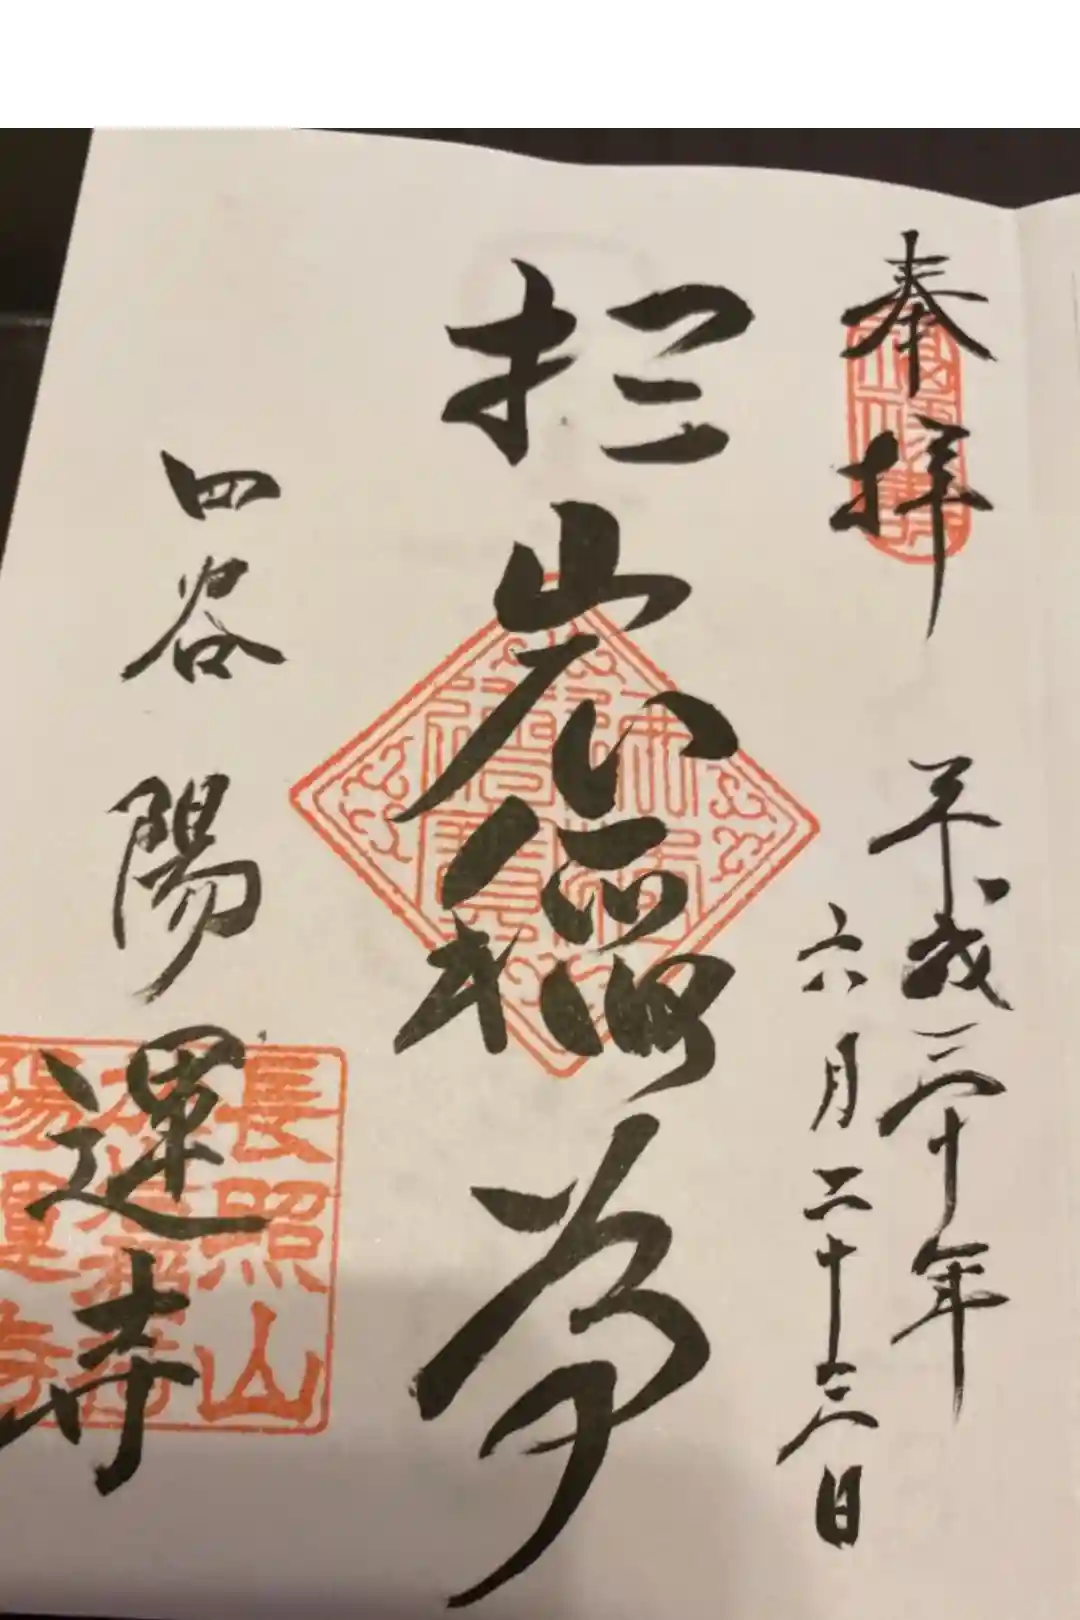 奉拝
平成三十年
六月二十三日
於岩稲荷
四谷陽運寺
長照山
陽運寺